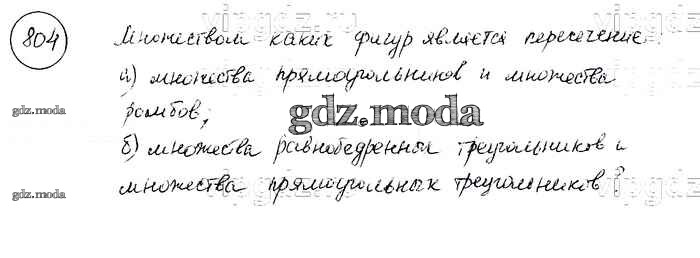 804 Множеством каких фигур является пересечение:
а) множества прямоугольников и множества
gdz.moda ромбов; gdz.moda
б) множества равнобедренных треугольников и
gdz.moda множества прямоугольных треугольников?